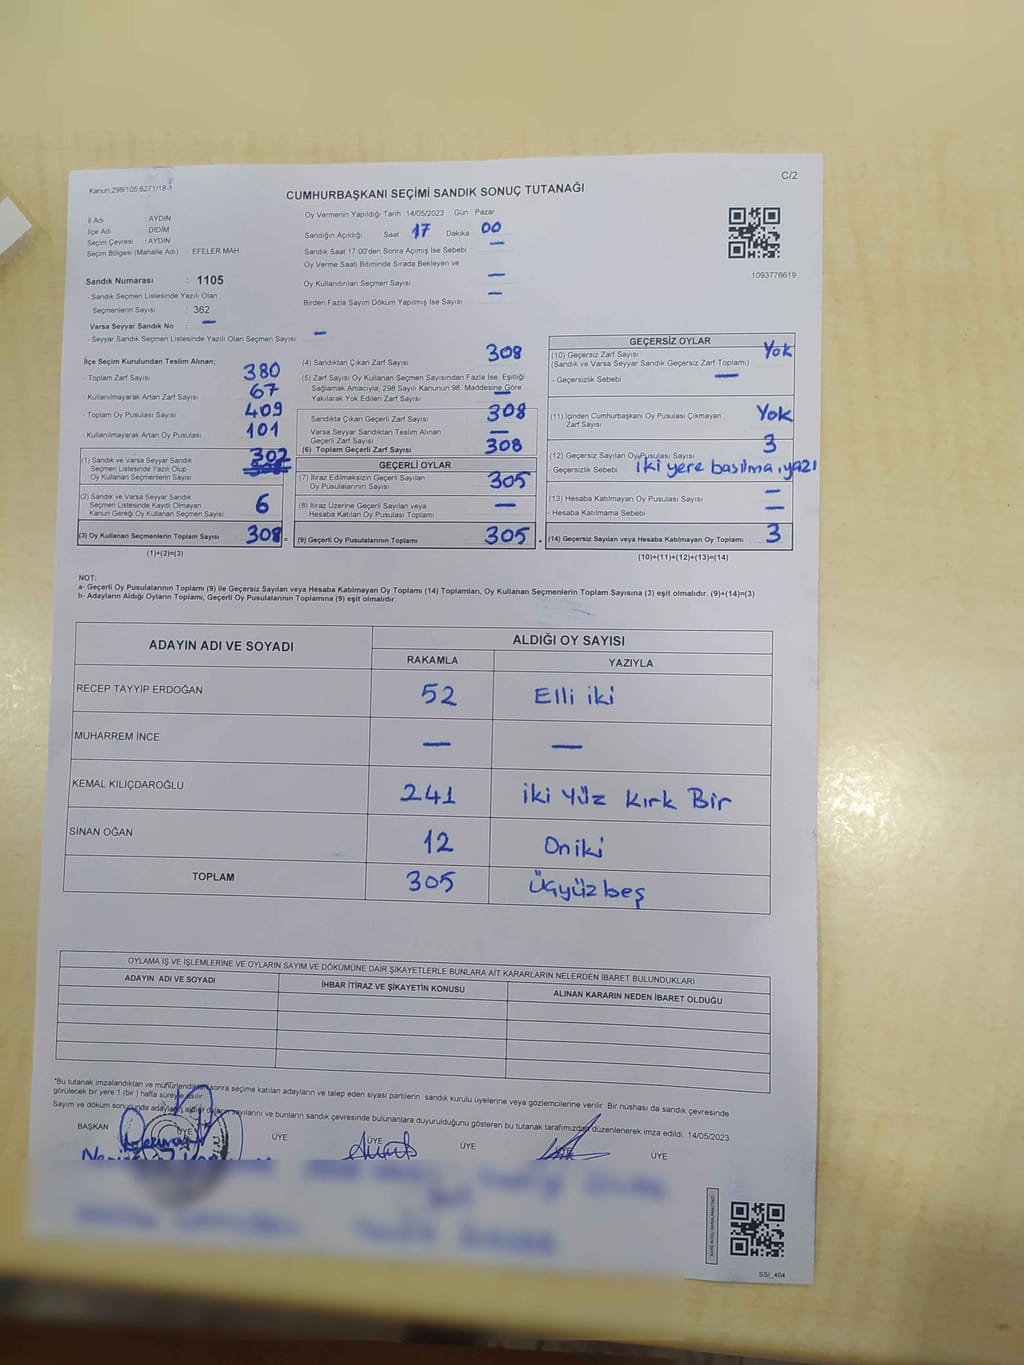 Kanun:298/105,6271/18-1
C/2
CUMHURBAŞKANI SEÇİMİ SANDIK SONUÇ TUTANAĞI
İl Adı : AYDIN
İlçe Adı : DİDİM
Seçim Çevresi : AYDIN
Seçim Bölgesi (Mahalle Adı) : EFELER MAH
Sandık Numarası : 1105
- Sandık Seçmen Listesinde Yazılı Olan
Seçmenlerin Sayısı : 362
Varsa Seyyar Sandık No : —
- Seyyar Sandık Seçmen Listesinde Yazılı Olan Seçmen Sayısı —
Oy Vermenin Yapıldığı Tarih :14/05/2023 Gün : Pazar
Sandığın Açıldığı Saat 17 Dakika 00
Sandık Saat 17.00'den Sonra Açılmış İse Sebebi —
Oy Verme Saati Bitiminde Sırada Bekleyen ve
Oy Kullandırılan Seçmen Sayısı —
Birden Fazla Sayım Döküm Yapılmış İse Sayısı —
1093776619
İlçe Seçim Kurulundan Teslim Alınan;
- Toplam Zarf Sayısı 380
- Kullanılmayarak Artan Zarf Sayısı 67
- Toplam Oy Pusulası Sayısı 409
- Kullanılmayarak Artan Oy Pusulası 101
(1) Sandık ve Varsa Seyyar Sandık
Seçmen Listesinde Yazılı Olup
Oy Kullanan Seçmenlerin Sayısı 302
(2) Sandık ve Varsa Seyyar Sandık
Seçmen Listesinde Kayıtlı Olmayan
Kanun Gereği Oy Kullanan Seçmen Sayısı 6
(3) Oy Kullanan Seçmenlerin Toplam Sayısı 308 =
(1)+(2)=(3)
(4) Sandıktan Çıkan Zarf Sayısı 308
(5) Zarf Sayısı Oy Kullanan Seçmen Sayısından Fazla İse, Eşitliği
Sağlamak Amacıyla, 298 Sayılı Kanunun 98. Maddesine Göre
Yakılarak Yok Edilen Zarf Sayısı —
Sandıkta Çıkan Geçerli Zarf Sayısı 308
Varsa Seyyar Sandıktan Teslim Alınan
Geçerli Zarf Sayısı —
(6) Toplam Geçerli Zarf Sayısı 308
GEÇERLİ OYLAR
(7) İtiraz Edilmeksizin Geçerli Sayılan
Oy Pusulalarının Sayısı 305
(8) İtiraz Üzerine Geçerli Sayılan veya
Hesaba Katılan Oy Pusulası Toplamı —
(9) Geçerli Oy Pusulalarının Toplamı 305
GEÇERSİZ OYLAR
(10) Geçersiz Zarf Sayısı Yok
(Sandık ve Varsa Seyyar Sandık Geçersiz Zarf Toplamı)
- Geçersizlik Sebebi —
(11) İçinden Cumhurbaşkanı Oy Pusulası Çıkmayan
Zarf Sayısı Yok
(12) Geçersiz Sayılan Oy Pusulası Sayısı 3
- Geçersizlik Sebebi iki yere basılma, yazı
(13) Hesaba Katılmayan Oy Pusulası Sayısı —
- Hesaba Katılmama Sebebi —
(14) Geçersiz Sayılan veya Hesaba Katılmayan Oy Toplamı 3
(10)+(11)+(12)+(13)=(14)
NOT:
a- Geçerli Oy Pusulalarının Toplamı (9) ile Geçersiz Sayılan veya Hesaba Katılmayan Oy Toplamı (14) Toplamları, Oy Kullanan Seçmenlerin Toplam Sayısına (3) eşit olmalıdır. (9)+(14)=(3)
b- Adayların Aldığı Oyların Toplamı, Geçerli Oy Pusulalarının Toplamına (9) eşit olmalıdır.
ADAYIN ADI VE SOYADI
ALDIĞI OY SAYISI
RAKAMLA YAZIYLA
RECEP TAYYİP ERDOĞAN 52 Elli iki
MUHARREM İNCE — —
KEMAL KILIÇDAROĞLU 241 iki Yüz Kırk Bir
SİNAN OĞAN 12 Oniki
TOPLAM 305 Üçyüzbeş
OYLAMA İŞ VE İŞLEMLERİNE VE OYLARIN SAYIM VE DÖKÜMÜNE DAİR ŞİKAYETLERLE BUNLARA AİT KARARLARIN NELERDEN İBARET BULUNDUKLARI
ADAYIN ADI VE SOYADI İHBAR İTİRAZ VE ŞİKAYETİN KONUSU ALINAN KARARIN NEDEN İBARET OLDUĞU
*Bu tutanak imzalandıktan ve mühürlendikten sonra seçime katılan adayların ve talep eden siyasi partilerin sandık kurulu üyelerine veya gözlemcilerine verilir. Bir nüshası da sandık çevresinde
görülecek bir yere 1 (bir) hafta süreyle asılır.
Sayım ve döküm sonucunda adayların aldığı oyların sayılarını ve bunların sandık çevresinde bulunanlara duyurulduğunu gösteren bu tutanak tarafımızdan düzenlenerek imza edildi. 14/05/2023
BAŞKAN ÜYE ÜYE ÜYE ÜYE ÜYE ÜYE
SSI_404